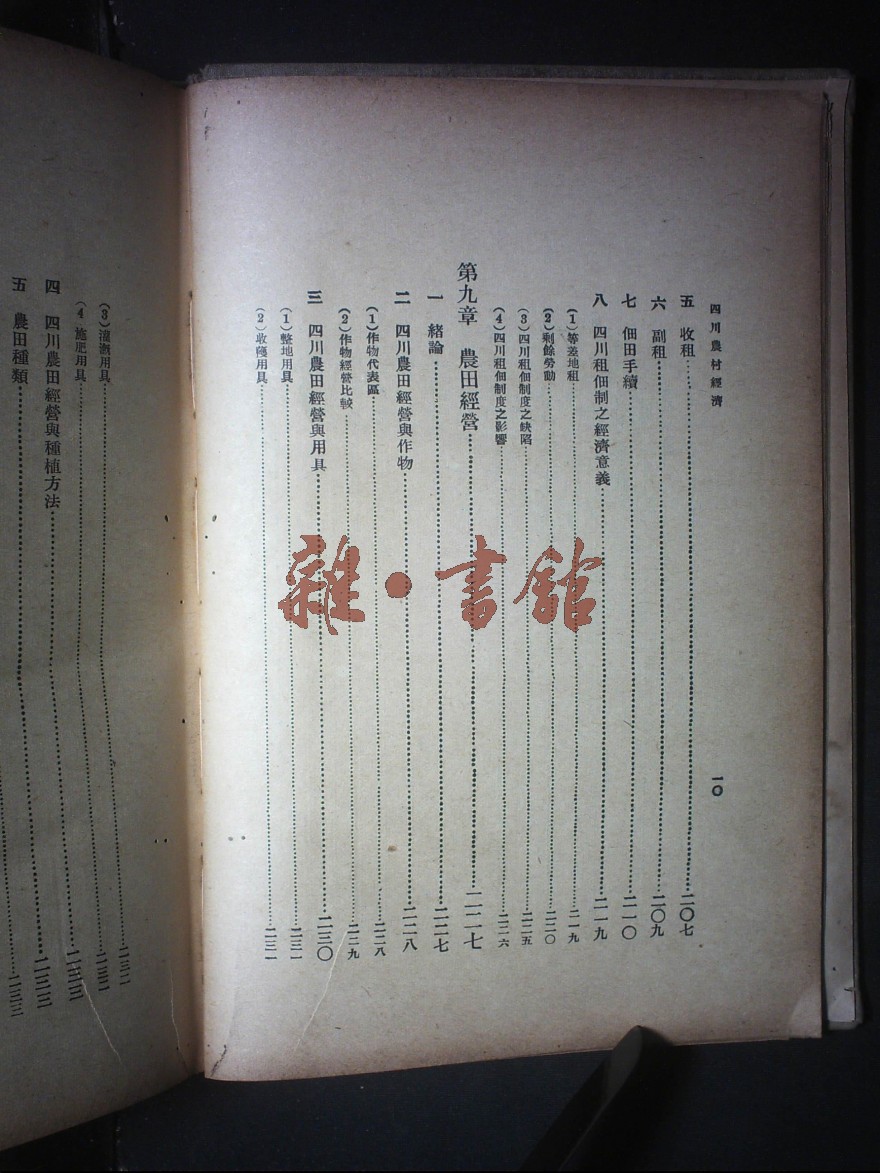 四川農村經濟
一〇
五 收租 二〇七
六 副租 二〇九
七 佃田手續 二一〇
八 四川租佃制之經濟意義 二一九
(1)等差地租 二一九
(2)剩餘勞動 二二〇
(3)四川租佃制度之缺陷 二二五
(4)四川租佃制度之影響 二二六
第九章 農田經營 二二七
一 緒論 二二七
二 四川農田經營與作物 二二八
(1)作物代表區 二二八
(2)作物經營比較 二二九
三 四川農田經營與用具 二三〇
(1)整地用具 二三一
(2)收穫用具 二三一
(3)灌漑用具
(4)施肥用具
四 四川農田經營與種植方法 二三三
五 農田種類 二三三
雜·書館